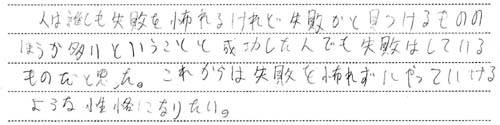 人は誰しも失敗を怖れるけれど失敗から見つけるものの
ほうが多いということと成功した人でも失敗はしている
ものだと思った。これからは失敗を怖れずにやっていける
ような性格になりたい。